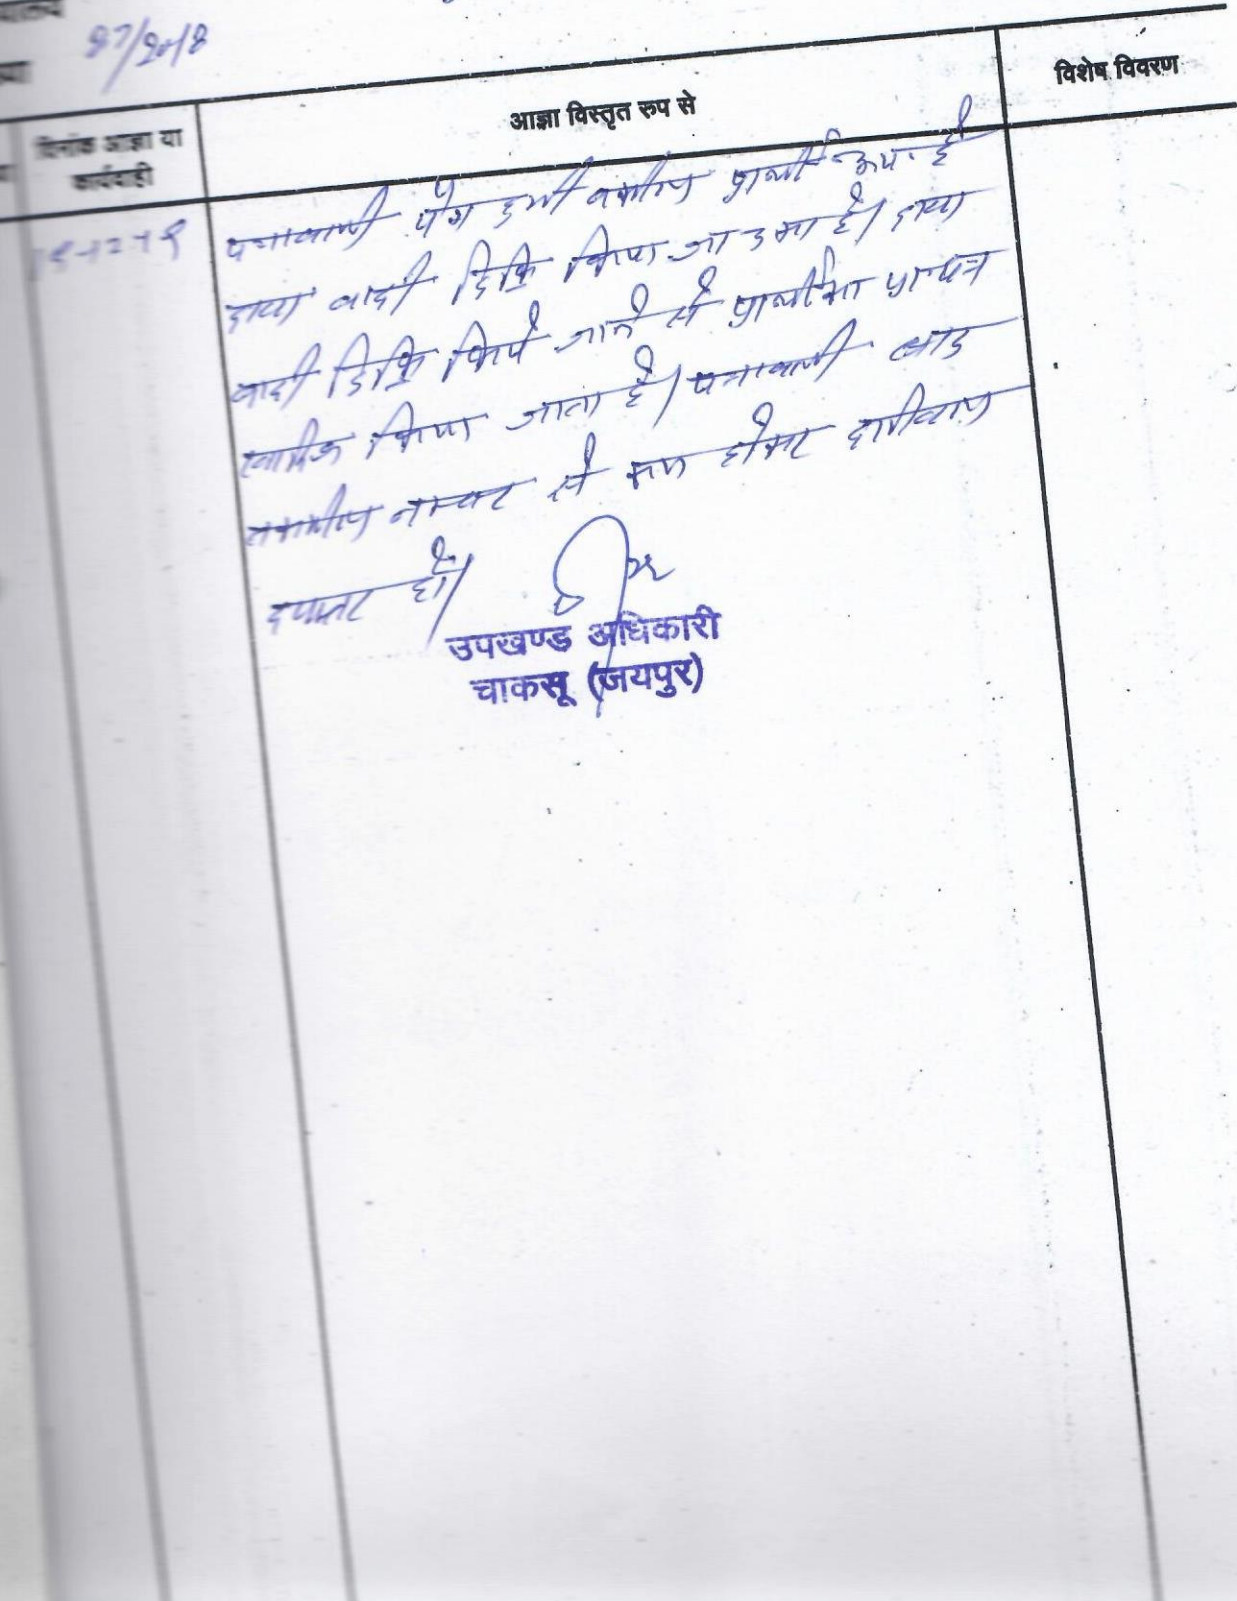 87/2018
विशेष विवरण
आज्ञा विस्तृत रुप से
दिनांक आज्ञा या
कार्यवाही
पत्रावली पेश हुयी वकील प्रार्थी उप. है
दावा वादी डिक्रि किया जा चुका है। दावा
वादी डिक्रि किये जाने से प्रार्थी का प्रा पत्र
खारिज किया जाता है। पत्रावली बाद
तकमील नम्बर से कम होकर दाखिल
दफ्तर हो।
उपखण्ड अधिकारी
चाकसू (जयपुर)